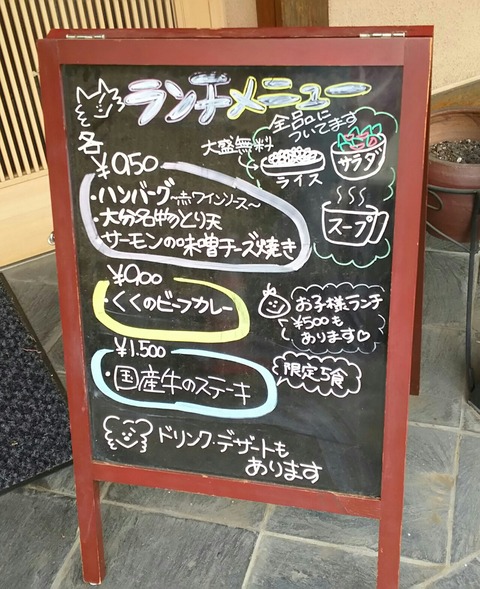 ランチメニュー
全品に
ついてます
大盛無料
ライス
サラダ
スープ
各
¥950
・ハンバーグ〜赤ワインソース〜
・大分名物とり天
・サーモンの味噌チーズ焼き
¥900
・くくのビーフカレー
お子様ランチ
¥500も
あります♡
¥1.500
・国産牛のステーキ
限定5食
ドリンク・デザートも
あります